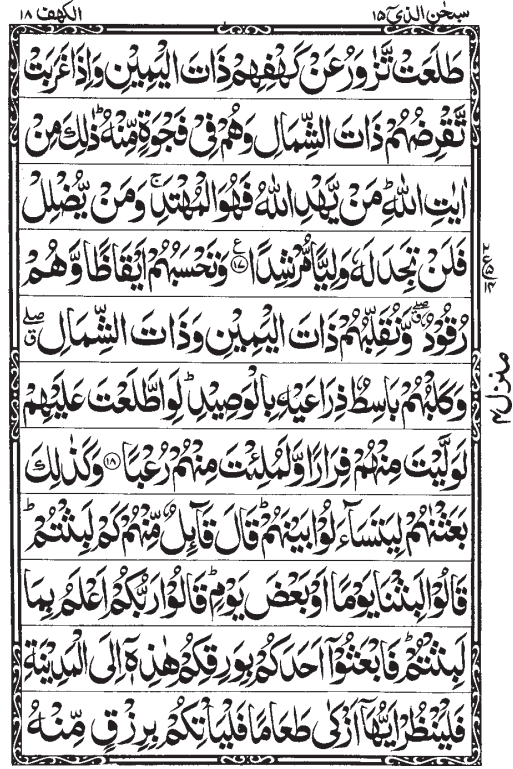 سبحٰن الذیٓ ۱۵
الکهف ۱۸
طَلَعَتْ تَّزٰوَرُ عَنْ كَهْفِهِمْ ذَاتَ الْيَمِيْنِ وَاِذَا غَرَبَتْ
تَّقْرِضُهُمْ ذَاتَ الشِّمَالِ وَهُمْ فِيْ فَجْوَةٍ مِّنْهُ ؕ ذٰلِكَ مِنْ
اٰيٰتِ اللّٰهِ ؕ مَنْ يَّهْدِ اللّٰهُ فَهُوَ الْمُهْتَدِ ۚ وَمَنْ يُّضْلِلْ
فَلَنْ تَجِدَ لَهٗ وَلِيًّا مُّرْشِدًا ع ۱۷ وَتَحْسَبُهُمْ اَيْقَاظًا وَّهُمْ
رُقُوْدٌ ۖ ق وَّنُقَلِّبُهُمْ ذَاتَ الْيَمِيْنِ وَذَاتَ الشِّمَالِ ۖ ق
وَكَلْبُهُمْ بَاسِطٌ ذِرَاعَيْهِ بِالْوَصِيْدِ ؕ لَوِ اطَّلَعْتَ عَلَيْهِمْ
لَوَلَّيْتَ مِنْهُمْ فِرَارًا وَّلَمُلِئْتَ مِنْهُمْ رُعْبًا ۱۸ وَكَذٰلِكَ
بَعَثْنٰهُمْ لِيَتَسَآءَلُوْا بَيْنَهُمْ ؕ قَالَ قَآئِلٌ مِّنْهُمْ كَمْ لَبِثْتُمْ ؕ
قَالُوْا لَبِثْنَا يَوْمًا اَوْ بَعْضَ يَوْمٍ ؕ قَالُوْا رَبُّكُمْ اَعْلَمُ بِمَا
لَبِثْتُمْ ؕ فَابْعَثُوْٓا اَحَدَكُمْ بِوَرِقِكُمْ هٰذِهٖٓ اِلَى الْمَدِيْنَةِ
فَلْيَنْظُرْ اَيُّهَآ اَزْكٰى طَعَامًا فَلْيَاْتِكُمْ بِرِزْقٍ مِّنْهُ
منزل ۴